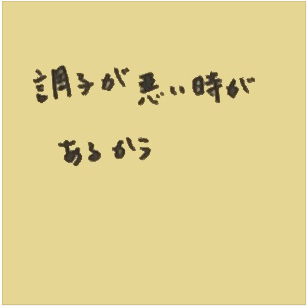 調子が悪い時が
あるから